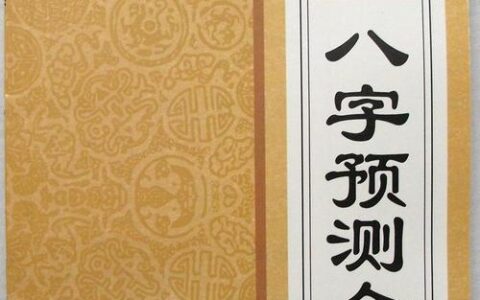 八字预测